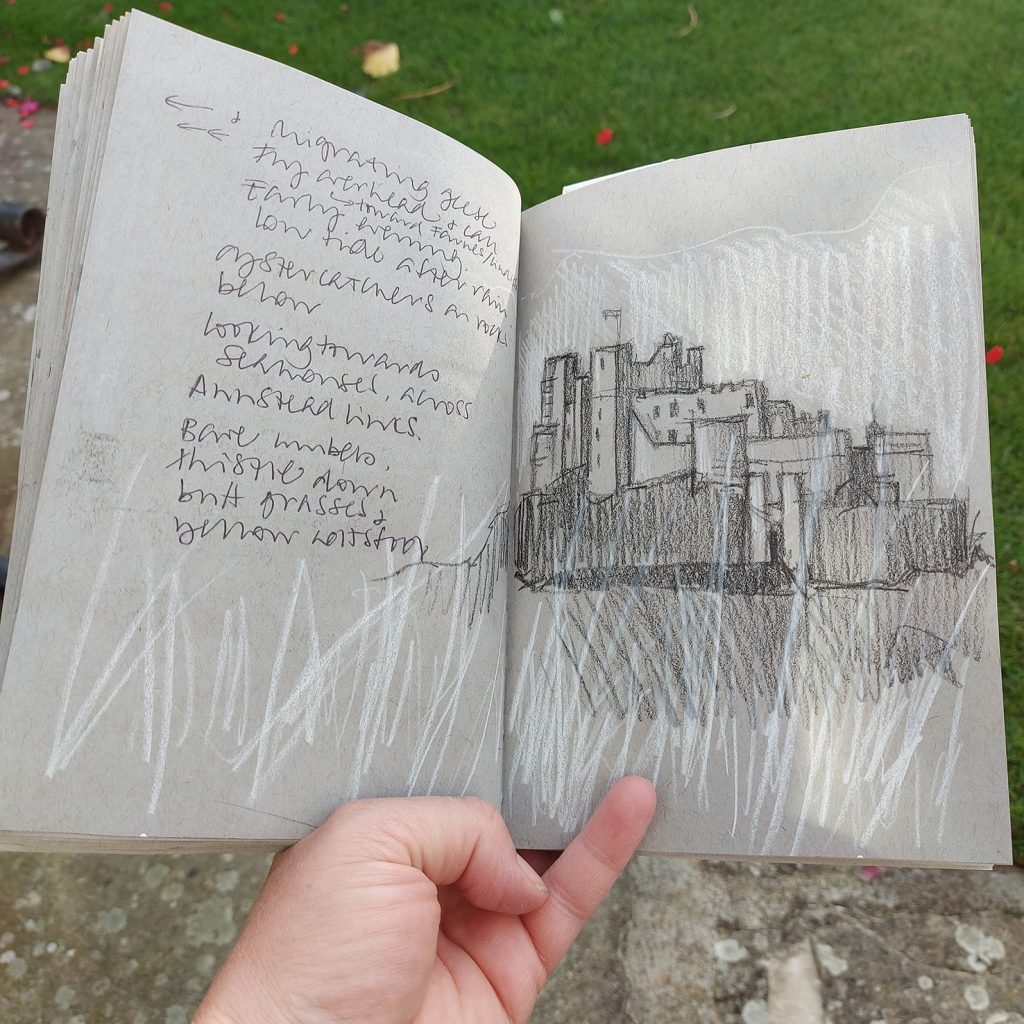 Migrating geese
fly overhead & can
toward Farnes/
Early evening.
Low tide after rain
oystercatchers on rocks
below
looking towards
Seahouses, across
Annstead links.
Bare umbels,
thistle down
buff grasses &
yellow